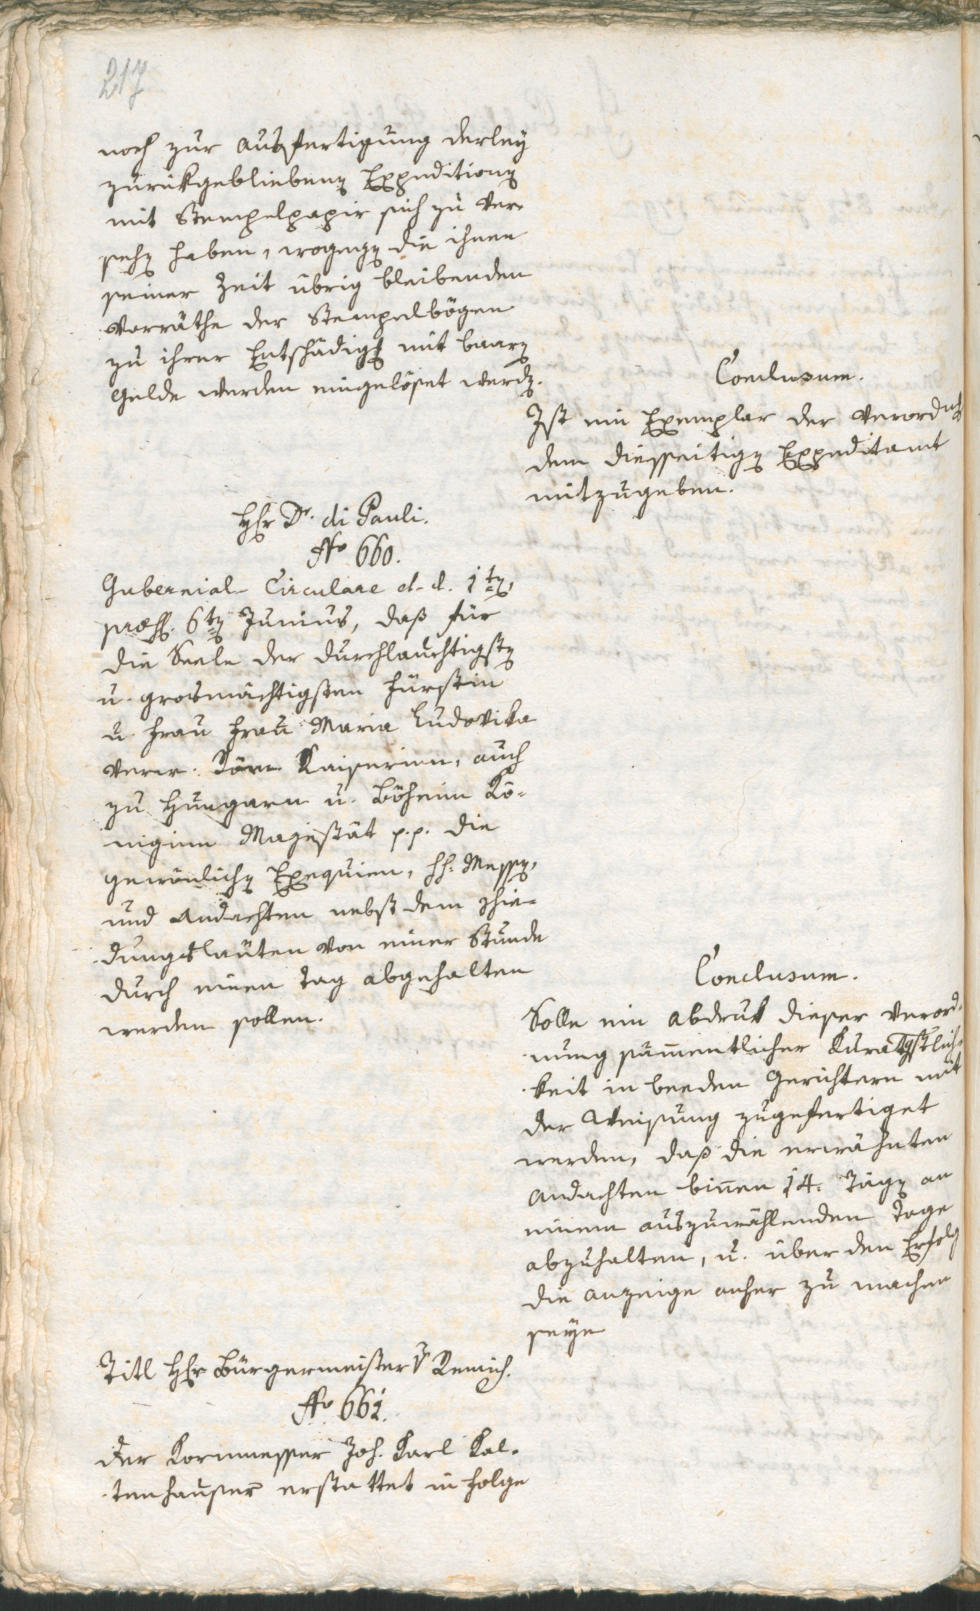 217
noch zur Ausfertigung derley
zurükgebliebenen Expeditionen
mit Stempelpapir sich zu ver-
sehen haben, wogegen die ihnen
seiner Zeit übrig bleibenden
Vorräthe der Stempelbögen
zu ihrer Entschädigg mit baaren
Gelde werden eingelöset werden.
Conclusum.
Ist ein Exemplar der Verordng
dem diesseitigen Expeditamt
mitzugeben.
Hr Dr. di Pauli.
No 660.
Gubernial-Circulare d. d. 1ten,
præs. 6ten Junius, daß für
die Seele der durchlauchtigsten
u. grosmächtigsten Fürstin
u. Frau Frau Maria Ludovika
verw. Röm. Kaiserinn, auch
zu Hungarn u. Böheim Kö-
niginn Majestät p.p. die
gewönlichen Exequien, hh. Messen,
und Andachten nebst dem
dungsläuten von einer Stunde
durch einen Tag abgehalten
werden sollen.
Conclusum.
Solle ein Abdruk dieser Verord-
nung sämentlicher Kuratgstlich-
keit in beeden Gerichtern mit
der Weisung zugefertiget
werden, daß die erwähnten
Andachten binen 14. Tägen an
einem auszuwählenden Tage
abzuhalten, u. über den Erfolg
die Anzeige anher zu machen
seye
Titl Hr Bürgermeister v Remich.
No 661.
Der Kornmesser Joh. Karl Kal-
tenhauser erstattet in Folge